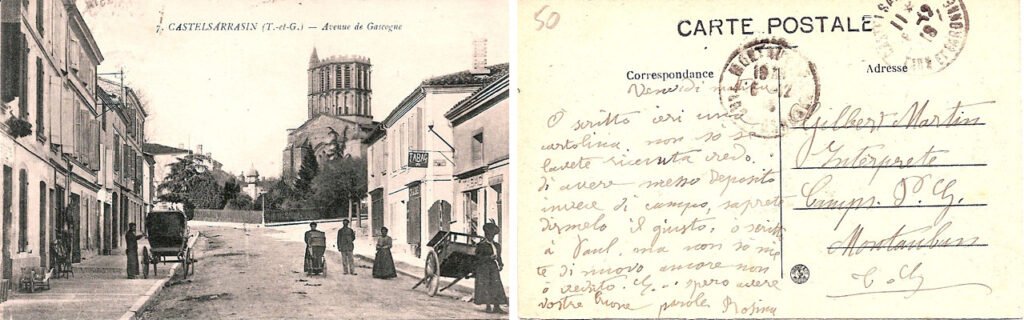 7. CASTELSARRASIN (T.-et-G.) — Avenue de Gascogne
TABAC
50
CARTE POSTALE
Correspondance
Adresse
Venerdi
O scritto ieri una
cartolina non sò se
lavete ricevuta credo
di avere messo Deposito
invece di campo, saprete
dirmelo il giusto. ò scritto
à Paul. ma non sò
di nuovo ancora non
ò spero avere
vostre buone parole Rosina
Gilbert Martin
Interprète
Camps. P. G.
Montauban
T. G.
MONTAUBAN